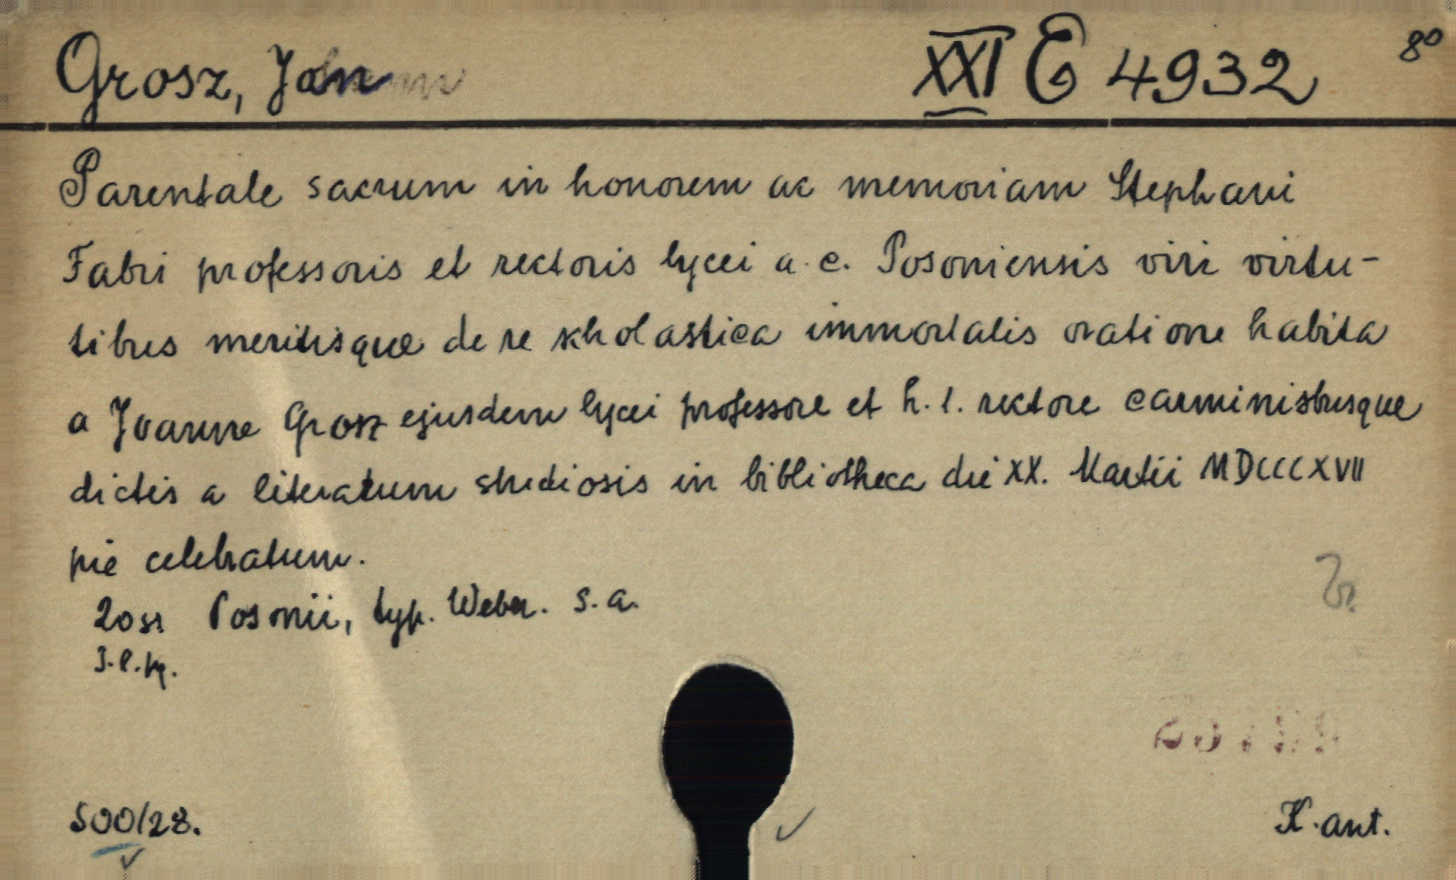 Grosz, Jan
XXI E 4932
8°
Parentale sacrum in honorem ac memoriam Stephani
Fabri professoris et rectoris lycei a. c. Posoniensis viri virtu-
tibus meritisque de re scholastica immortalis oratione habita
a Joanne Grosz ejusdem lycei professore et h. t. rectore carminisbusque
dictis a literatum studiosis in bibliotheca die XX. Martii MDCCCXVII
pie celebratum.
20 s. Posonii, typ. Weber. s. a.
500/28.
K. ant.